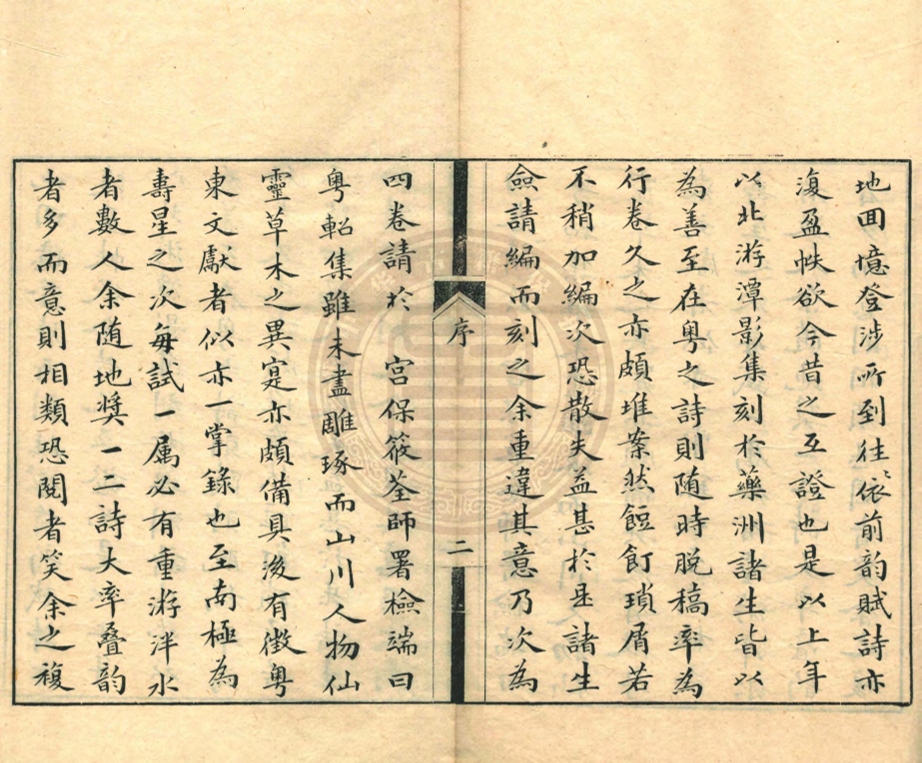 地囬境登涉所到往〻依前韵賦詩亦
復盈帙欲今昔之互證也是以上年
以北游潭影集刻於藥洲諸生皆以
為善至在粤之詩則随時脱稿率為
行卷久之亦頗堆案然飣餖瑣屑若
不稍加編次恐散失益甚於是諸生
僉請編而刻之余重違其意乃次為
序
二
四卷請於 宫保筱荃師署檢端曰
粤軺集雖未盡雕琢而山川人物仙
靈草木之異寔亦頗備具後有徴粤
東文獻者似亦一掌錄也至南極為
壽星之次每試一属必有重游泮水
者數人余随地奨一二詩大率叠韵
者多而意則相類恐閲者笑余之複